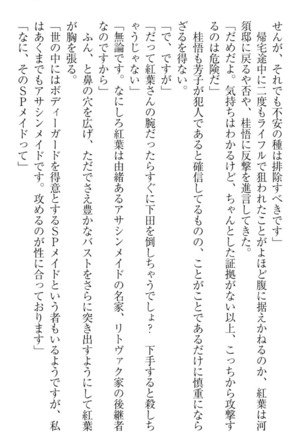 せんが、それでも不安の種は排除すべきです」
帰宅途中に二度もライフルで狙われたことがよほど腹に据えかねるのか、紅葉は河
須邸に戻るや否や、桂悟に反撃を進言してきた。
「だめだよ。気持ちはわかるけど、ちゃんとした証拠がない以上、こっちから攻撃す
るのは危険だ」
桂悟も芳子が犯人であると確信してるものの、ことがことであるだけに慎重になら
ざるを得ない。
「で、ですが」
「だって紅葉さんの腕だったらすぐに下田を倒しちゃうでしょ？　下手すると殺しち
ゃうじゃない」
「無論です。なにしろ紅葉は由緒あるアサシンメイドの名家、リトヴァク家の後継者
なのですから」
ふん、と鼻の穴を広げ、ただでさえ豊かなバストをさらに突き出すようにして紅葉
が胸を張る。
「世の中にはボディーガードを得意とするＳＰメイドという者もいるようですが、私
はあくまでもアサシンメイドです。攻めるのが性に合っております」
「なに、そのＳＰメイドって」